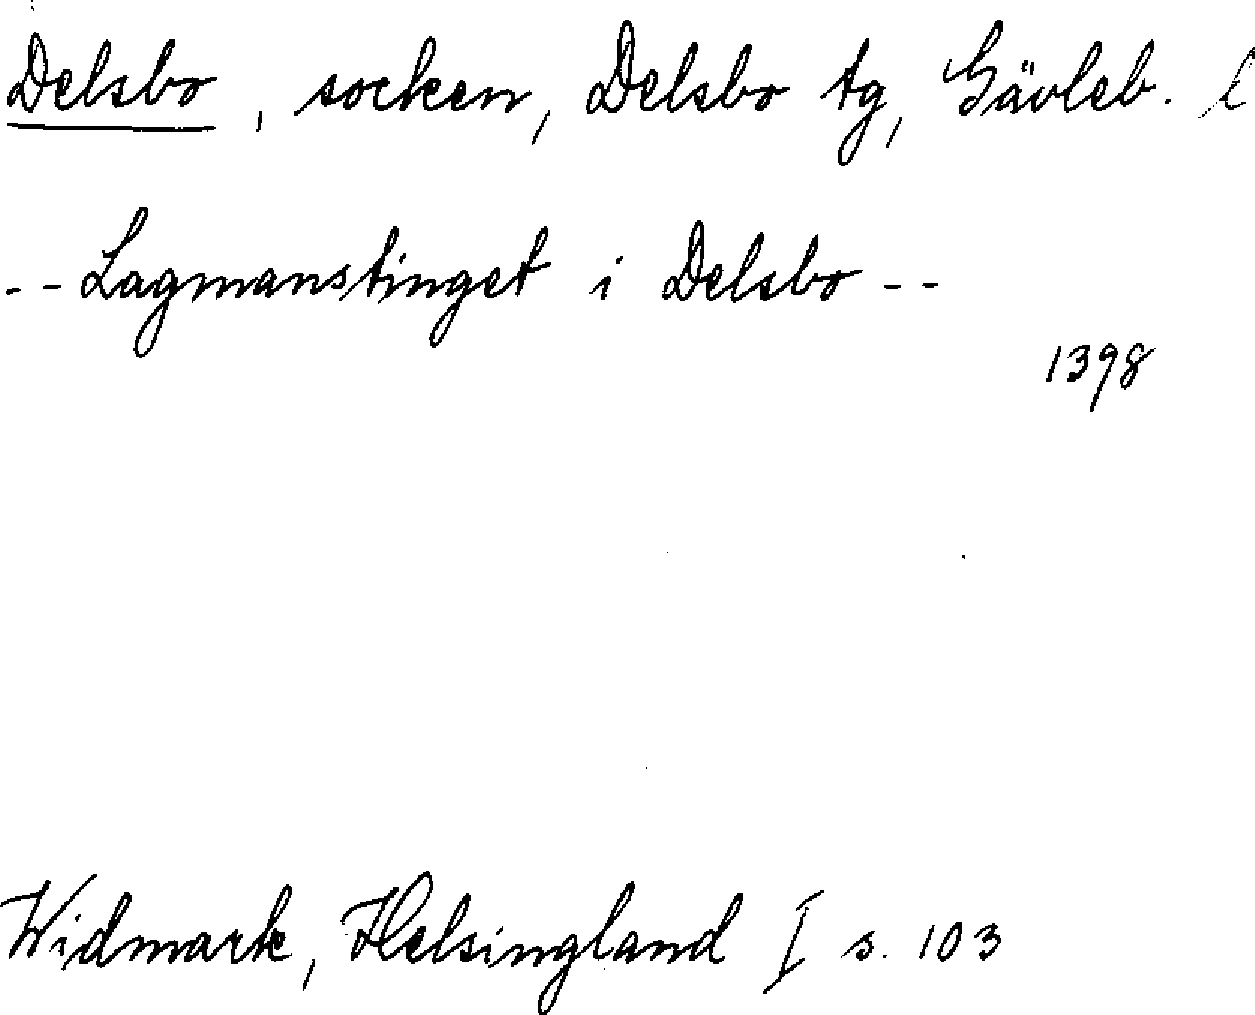 Delsbo, socken, Delsbo tg, Gävleb. l
-- Lagmanstinget i Delsbo --
1398
Widmark, Helsingland I s. 103